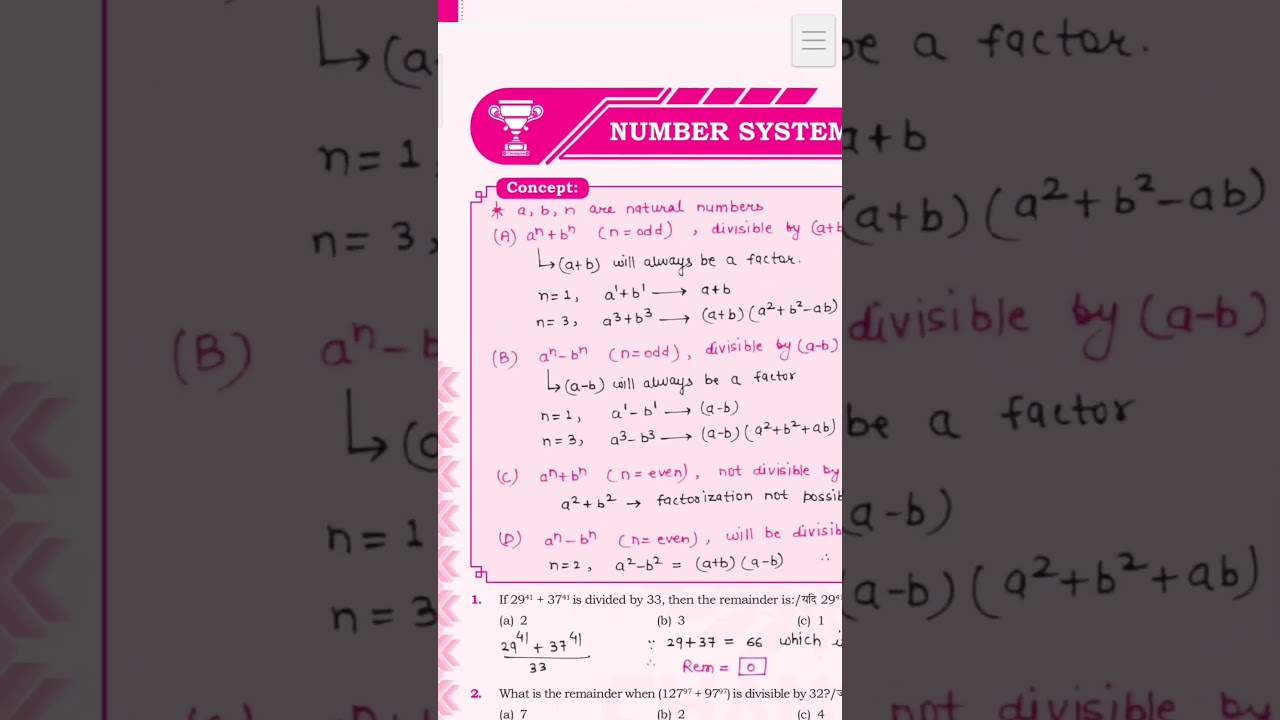 NUMBER SYSTEM
Concept:
* a, b, n are natural numbers
(A) aⁿ+bⁿ (n=odd) , divisible by (a+b
↳(a+b) will always be a factor.
n=1, a¹+b¹ ⟶ a+b
n=3, a³+b³ ⟶ (a+b)(a²+b²-ab)
(B) aⁿ-bⁿ (n=odd), divisible by (a-b)
↳(a-b) will always be a factor
n=1, a¹-b¹ ⟶ (a-b)
n=3, a³-b³ ⟶ (a-b)(a²+b²+ab)
(C) aⁿ+bⁿ (n=even), not divisible by
a²+b² → factorization not possib
(D) aⁿ-bⁿ (n=even), will be divisib
n=2, a²-b² = (a+b)(a-b) ∴
1. If 29⁴¹ + 37⁴¹ is divided by 33, then the remainder is:/यदि 29⁴¹
(a) 2 (b) 3 (c) 1
29⁴¹ + 37⁴¹ ∵ 29+37 = 66 which i
33 ∴ Rem = 0
2. What is the remainder when (127⁹⁷ + 97⁹⁷) is divisible by 32?/
(a) 7 (b) 2 (c) 4
↳(a
n=1
n=3,
(B) aⁿ-b
↳(
n=1
n=3
be a factor.
a+b
(a+b)(a²+b²-ab)
divisible by (a-b)
be a factor
(a-b)
(a-b)(a²+b²+ab)
not divisible by